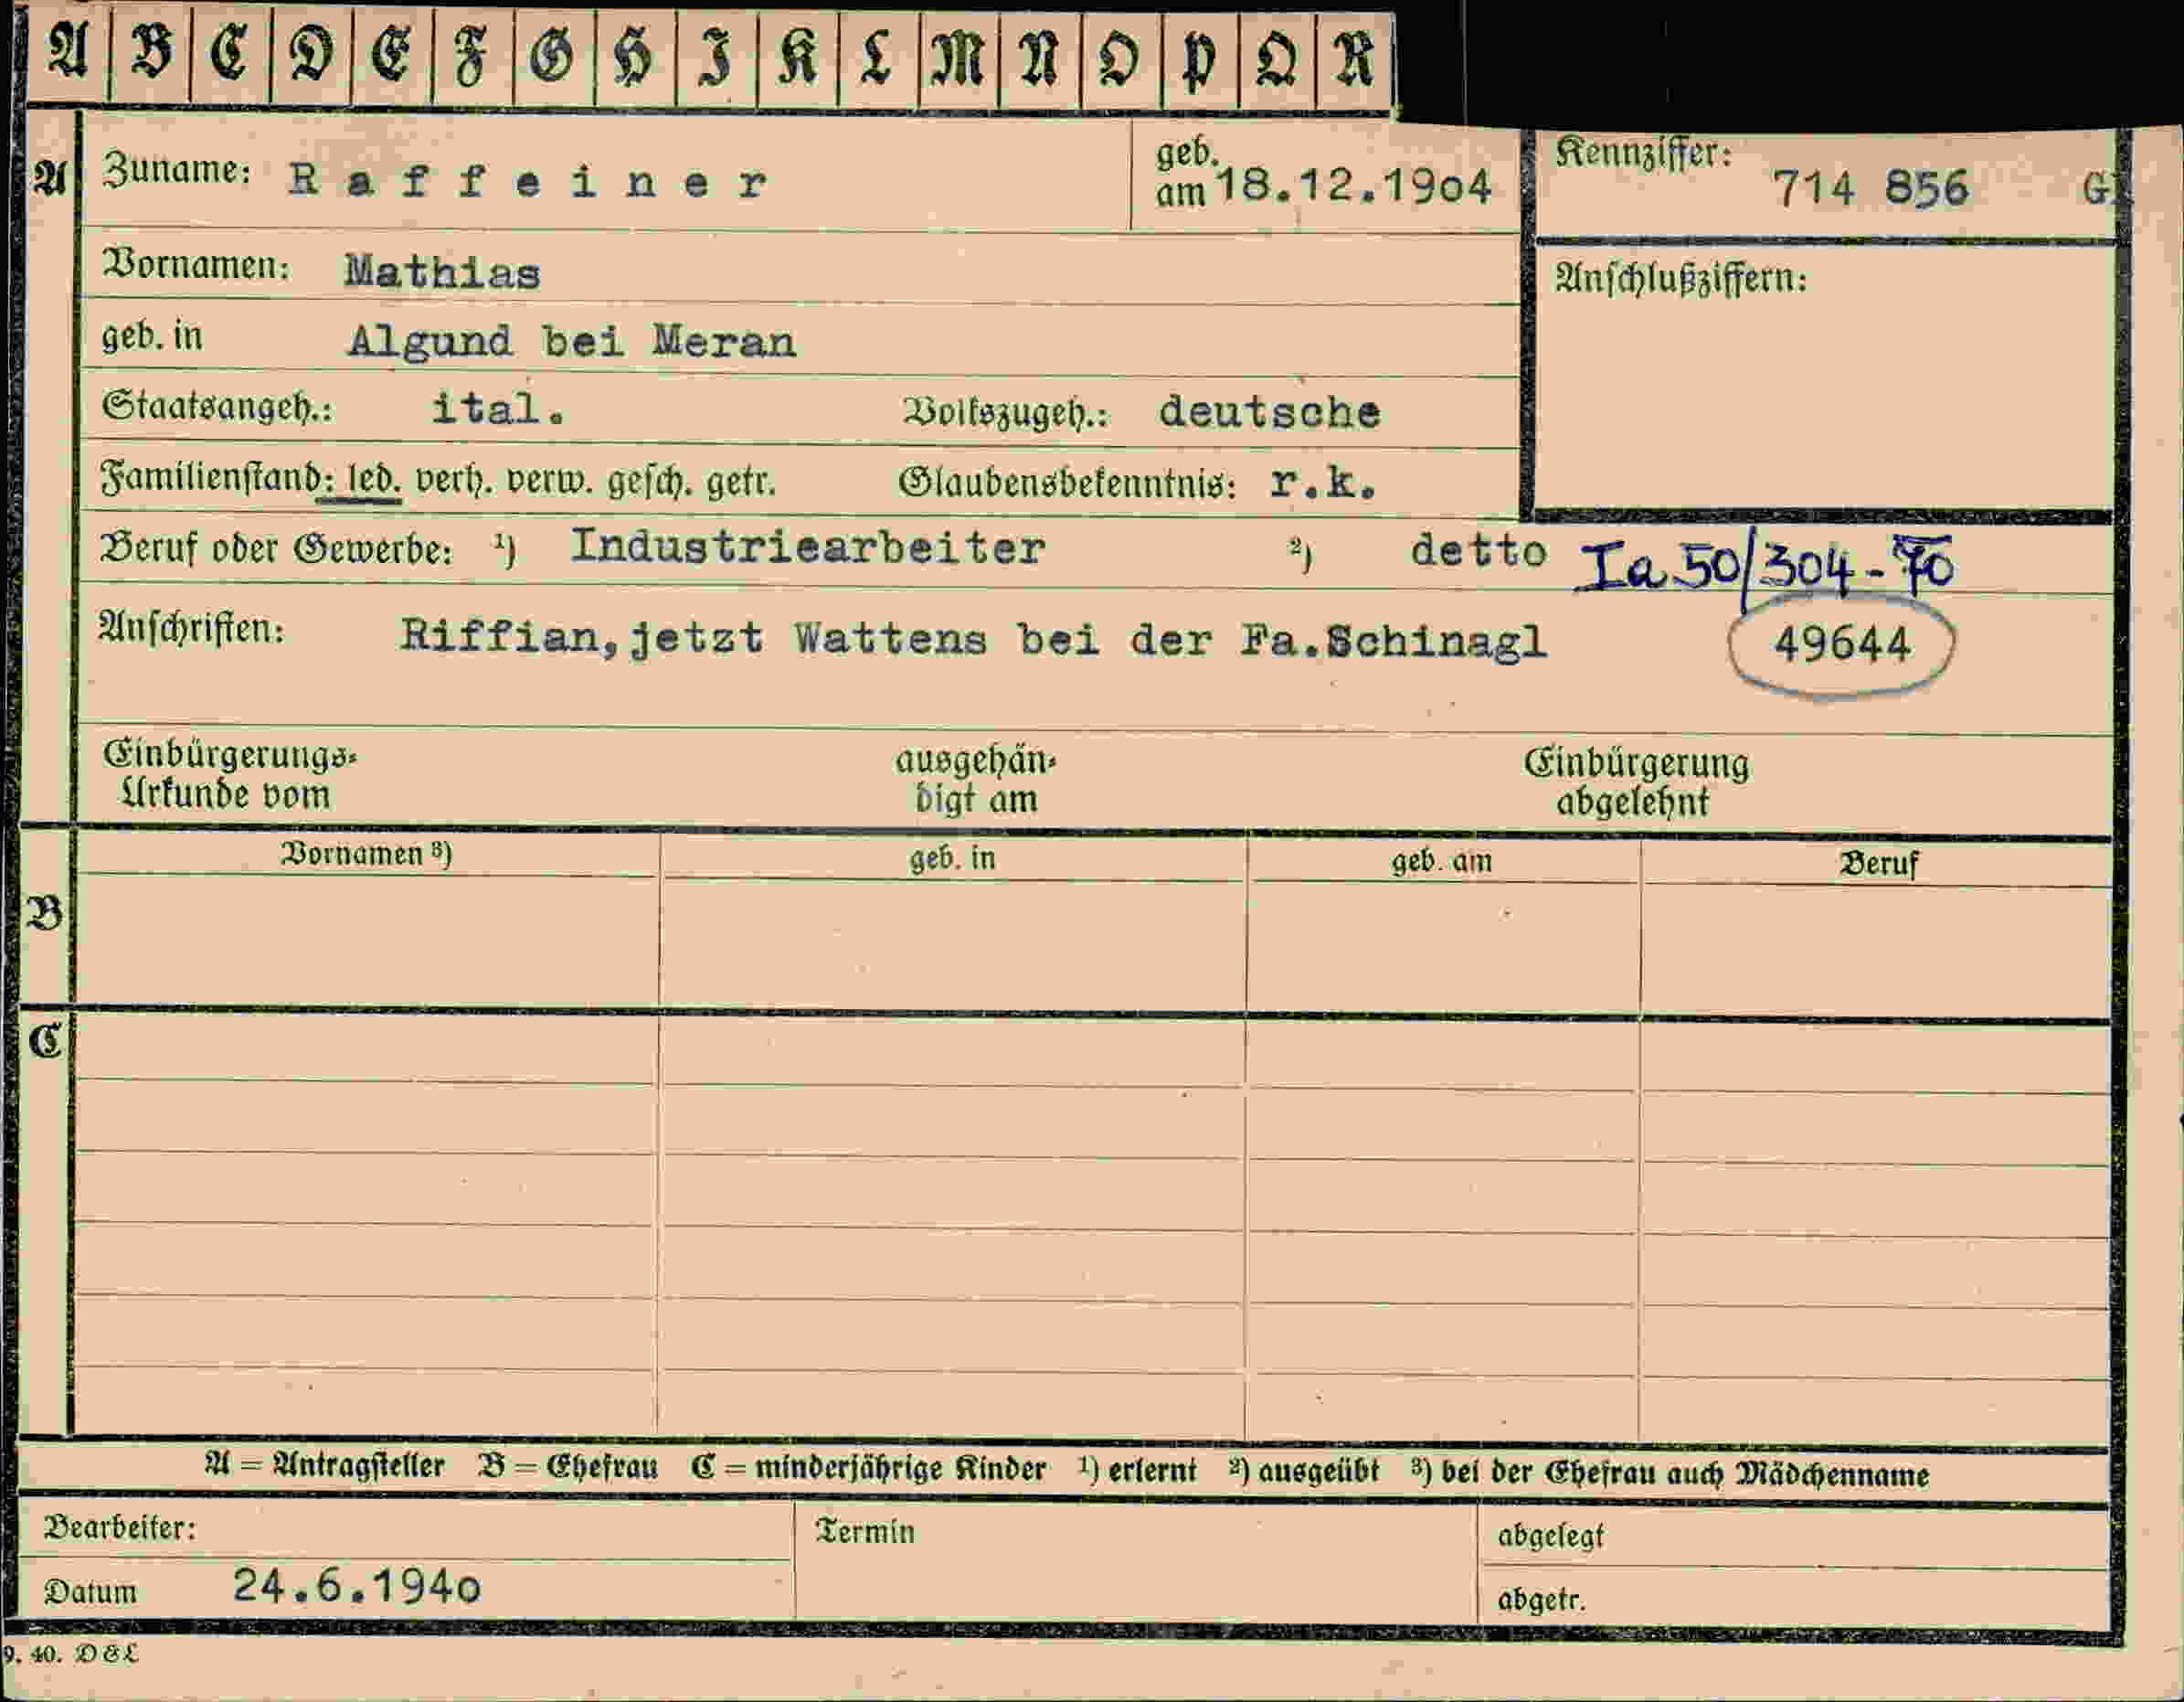 A B C D E F G H I K L M N O P Q R
A Zuname: Raffeiner geb. am 18.12.19o4 Kennziffer: 714 856 G
Vornamen: Mathias Anschlußziffern:
geb. in Algund bei Meran
Staatsangeh.: ital. Volkszugeh.: deutsche
Familienstand: led. verh. verw. gesch. getr. Glaubensbekenntnis: r.k.
Beruf oder Gewerbe: ¹) Industriearbeiter ²) detto Ia 50/304-70
Anschriften: Riffian, jetzt Wattens bei der Fa.Schinagl 49644
Einbürgerungs- ausgehän- Einbürgerung
Urkunde vom digt am abgelehnt
Vornamen ³) geb. in geb. am Beruf
B
C
A = Antragsteller B = Ehefrau C = minderjährige Kinder ¹) erlernt ²) ausgeübt ³) bei der Ehefrau auch Mädchenname
Bearbeiter: Termin abgelegt
Datum 24.6.194o abgetr.
9. 40. D&L